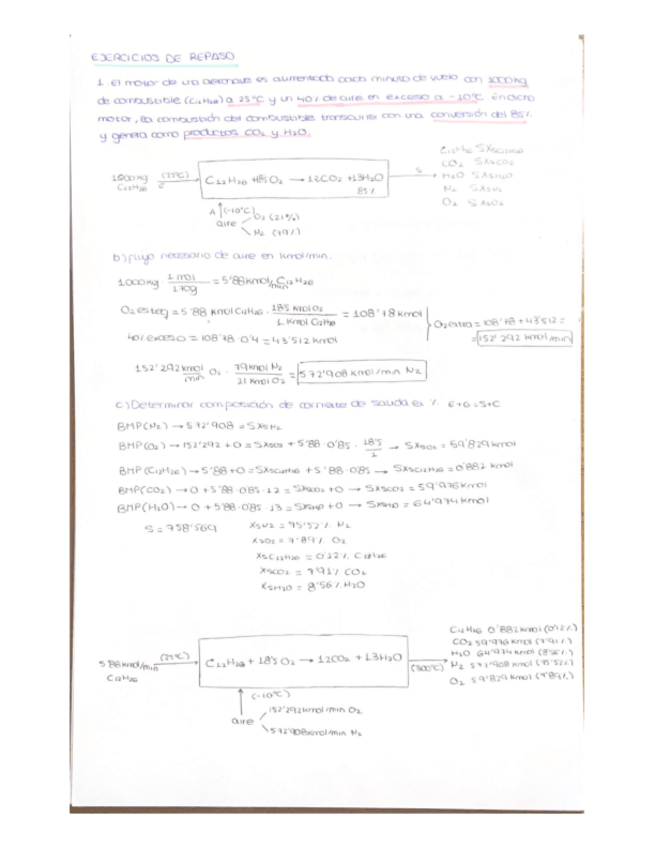 EJERCICIOS DE REPASO
1. El motor de una aeronave es alimentado cada minuto de vuelo con 1000kg
de combustible (C12H26) a 25ºC y un 40% de aire en exceso a -10ºC. En dicho
motor, la combustión del combustible transcurre con una conversión del 85%
y genera como productos CO2 y H2O.
1000kg C12H26 (25ºC)
C12H26 + 18'5 O2 → 12CO2 + 13H2O
85%
S
C12H26 SXSC12H26
CO2 SXSCO2
H2O SXSH2O
N2 SXSN2
O2 SXSO2
A (-10ºC)
aire
O2 (21%)
N2 (79%)
b) Flujo necesario de aire en kmol/min.
1000kg · 1 mol / 170g = 5'88 kmol/min C12H26
O2 esteq = 5'88 kmol C12H26 · 18'5 kmol O2 / 1 kmol C12H26 = 108'78 kmol
40% exceso = 108'78 · 0'4 = 43'512 kmol
O2 entra = 108'78 + 43'512 =
= 152'292 kmol/min
152'292 kmol/min O2 · 79 kmol N2 / 21 kmol O2 = 572'908 kmol/min N2
c) Determinar composición de corriente de salida en %. E+G=S+C
BMP(N2) → 572'908 = SXSN2
BMP(O2) → 152'292 + 0 = SXSO2 + 5'88 · 0'85 · 18'5 / 1 → SXSO2 = 59'829 kmol
BMP(C12H26) → 5'88 + 0 = SXSC12H26 + 5'88 · 0'85 → SXSC12H26 = 0'882 kmol
BMP(CO2) → 0 + 5'88 · 0'85 · 12 = SXSCO2 + 0 → SXSCO2 = 59'976 kmol
BMP(H2O) → 0 + 5'88 · 0'85 · 13 = SXSH2O + 0 → SXSH2O = 64'974 kmol
S = 758'569
XSN2 = 75'52% N2
XSO2 = 7'89% O2
XSC12H26 = 0'12% C12H26
XSCO2 = 7'91% CO2
XSH2O = 8'56% H2O
5'88 kmol/min C12H26 (25ºC)
C12H26 + 18'5 O2 → 12CO2 + 13H2O
(300ºC)
C12H26 0'882 kmol (0'12%)
CO2 59'976 kmol (7'91%)
H2O 64'974 kmol (8'56%)
N2 572'908 kmol (75'52%)
O2 59'829 kmol (7'89%)
(-10ºC)
aire
152'292 kmol/min O2
572'908 kmol/min N2